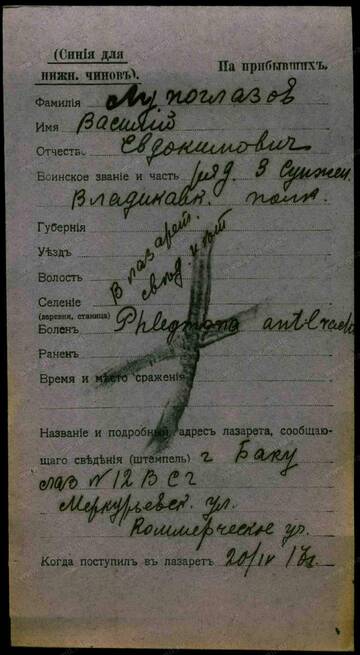 (Синія для нижн. чиновъ).
На прибывшихъ.
Фамилія Лупоглазов
Имя Василій
Отчеств. Евдокимович
Воинское званіе и часть ряд. 3 Сунжен.
Владикавк. полк.
Губернія
Уѣздъ
Волость
Селеніе
(деревня, станица)
В лазарет.
свѣд. нѣт
Боленъ Phlegmona
Раненъ
Время и мѣсто сраженія
Названіе и подробный адресъ лазарета, сообщаю-
щаго свѣдѣнія (штемпель) г Баку
лаз N 12 В С г
Меркурьевск. ул.
Коммерческое уч.
Когда поступилъ въ лазаретъ 20/IV